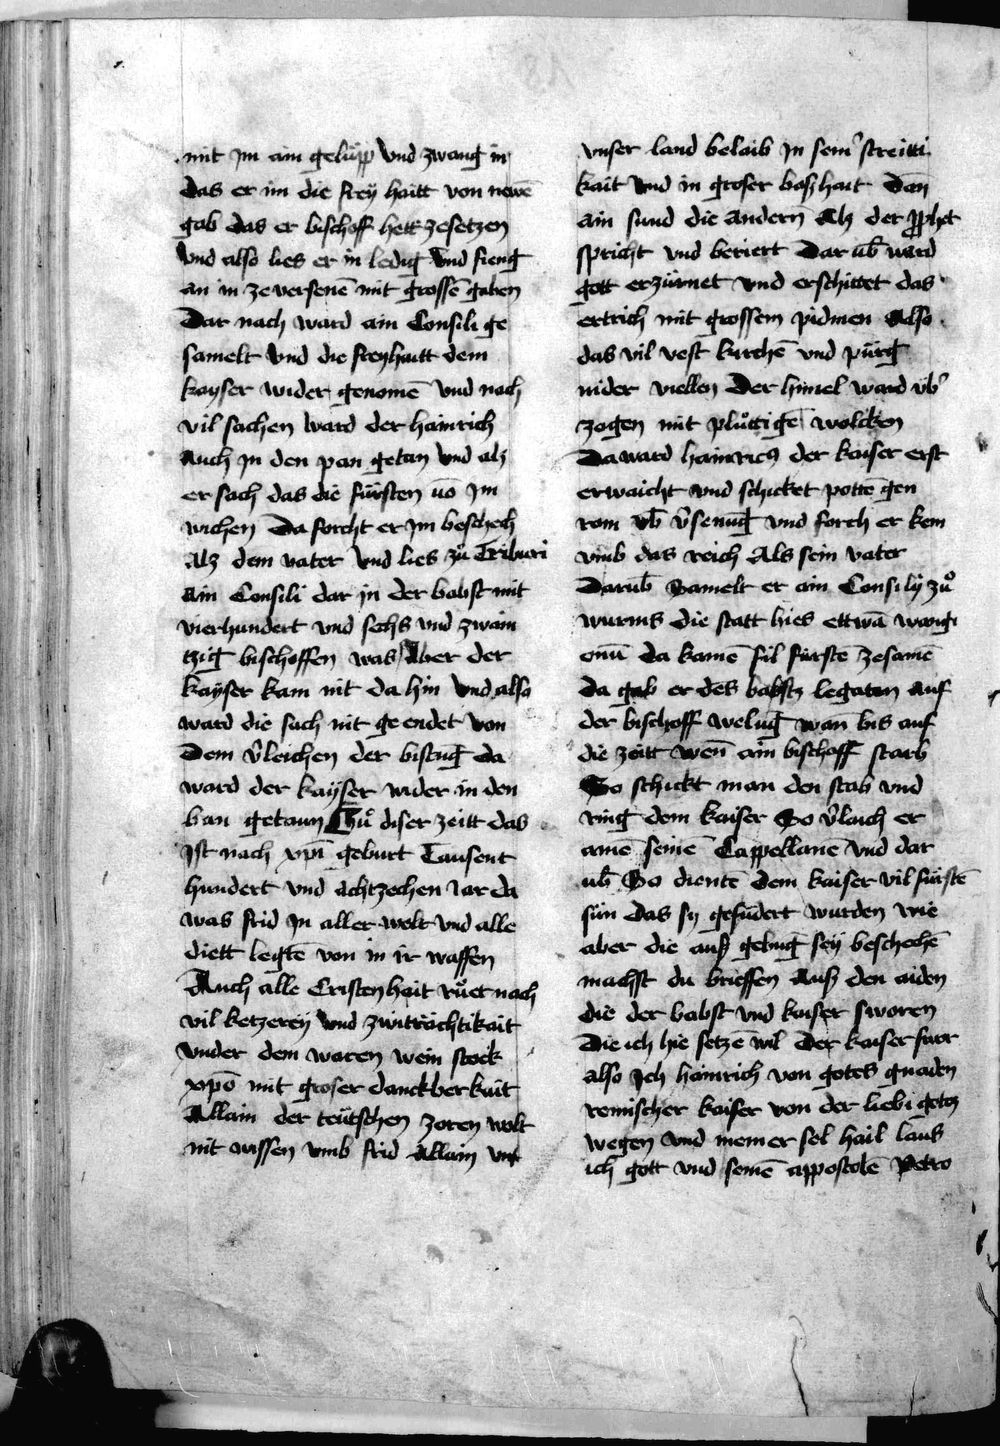 mit jm ain gelüpp vnd zwang in
das er im die freÿ haitt von newē
gab das er bischoff hett zesetzen
Vnd also lies er in ledig vnd fieng
an in ze versenē mit grossē gaben
Dar nach ward ain Consili ge
samelt vnd die freyhaitt dem
kayser wider genomē vnd nach
vil sachen ward der hainrich
Auch jn den pan getan vnd alz
er sach das die fürsten vō jm
wichen Da forcht er jm beschech
Alz dem vater vnd lies zů Triburi
Ain Consili dar in der babst mit
vierhundert vnd sechs vnd zwain
tzig bischoffen was Aber der
kaÿser kam nit da hin vnd also
ward die sach nit geendet von
Dem v̄leichen der bistuḡ da
ward der kaÿser wider in den
ban getaun Zů diser zeitt das
Jst nach xp̄i geburt Tausent
hundert vnd achtzechen Jar da
was frid jn aller welt vnd alle
diett legtē von in ir waffen
Auch alle Cristenhait růet nach
vil ketzereÿ vnd zwiträchtikait
vnder dem waren wein stock
xp̄o mit groser danckberkait
Allain der teütschen zoren wolt
nit wissen vmb frid Allain vnt
vnser land belaib jn sem̄ streitti
kait vnd in groser boshait Dan̄
ain sund die andern Alz der pp̄het
spricht vnd beriert Dar ub̄ ward
gott erzürnet vnd erschittet das
ertrich mit grossem pidmen Also
das vil vest kirchē vnd pürg
nider viellen Der himel ward v̄b
zogen mit plůttigē wolcken
Da ward hainricꝰ der kaiser erst
erwaicht vnd schicket pottē gen
rom vb̄ v̄senuḡ vnd forch er kem
vmb das reich Als sein vater
Darub̄ Samelt er ain Consilÿ zů
wurms die statt hies ettwā wangi
onū da kamē fil fürstē zesamē
da gab er des babstz legaten auf
der bischoff weluḡ wan bis auf
die zeitt wen̄ ain bischoff starb
So schickt man den stab vnd
ring dem kaiser So v̄laich er
ainē seinē Cappellanē vnd dar
ub̄ So dientē dem kaiser vil fürstē
sün das sy gefūdert wurden wie
aber die auß gebuḡ seÿ beschechē
machst du brieffen Auß den aiden
die der babst vnd kaiser sworen
Die ich hie setzē wil Der kaiser swor
also Jch hainrich von gotes gnaden
remischer kaiser von der liebi gotz
wegen vnd meiner sel hail laus
ich gott vnd seinē appostolē Petro